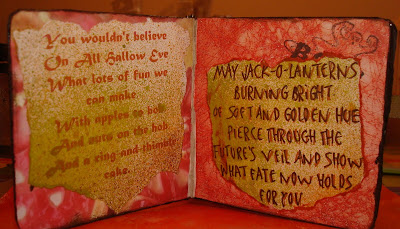 You wouldn't believe
On All Hallow Eve
What lots of fun we
can make
With apples to bob
And nuts on the hob
And a ring-and-thimble
cake.
MAY JACK-O-LANTERNS,
BURNING BRIGHT
OF SOFT AND GOLDEN HUE
PIERCE THROUGH THE
FUTURE'S VEIL AND SHOW
WHAT FATE NOW HOLDS
FOR YOU